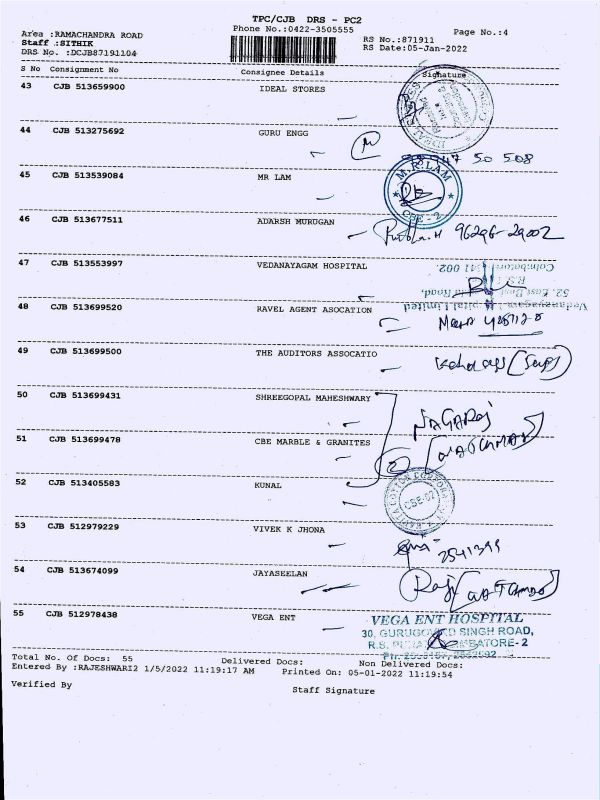 TPC/CJB DRS - PC2
Phone No.:0422-3505555
Page No.:4
Area :RAMACHANDRA ROAD
Staff :SITHIK
DRS No. :DCJB87191104
RS No.:871911
RS Date:05-Jan-2022
S No Consignment No Consignee Details Signature
43 CJB 513659900 IDEAL STORES
44 CJB 513275692 GURU ENGG
47 50 508
45 CJB 513539084 MR LAM
M.R. LAM
CBE - 2
46 CJB 513677511 ADARSH MURUGAN
96296-29002
47 CJB 513553997 VEDANAYAGAM HOSPITAL
Coimbatore 641 002.
48 CJB 513699520 RAVEL AGENT ASOCATION
49 CJB 513699500 THE AUDITORS ASSOCATIO
50 CJB 513699431 SHREEGOPAL MAHESHWARY
NAGARAJ
(WATCHMAN)
51 CJB 513699478 CBE MARBLE & GRANITES
52 CJB 513405583 KUNAL
CBE-02
53 CJB 512979229 VIVEK K JHONA
2541399
54 CJB 513674099 JAYASEELAN
Raj
55 CJB 512978438 VEGA ENT
VEGA ENT HOSPITAL
30, GURUGOVIND SINGH ROAD,
Total No. Of Docs: 55 Delivered Docs: Non Delivered Docs:
Entered By :RAJESHWARI2 1/5/2022 11:19:17 AM Printed On: 05-01-2022 11:19:54
Verified By
Staff Signature